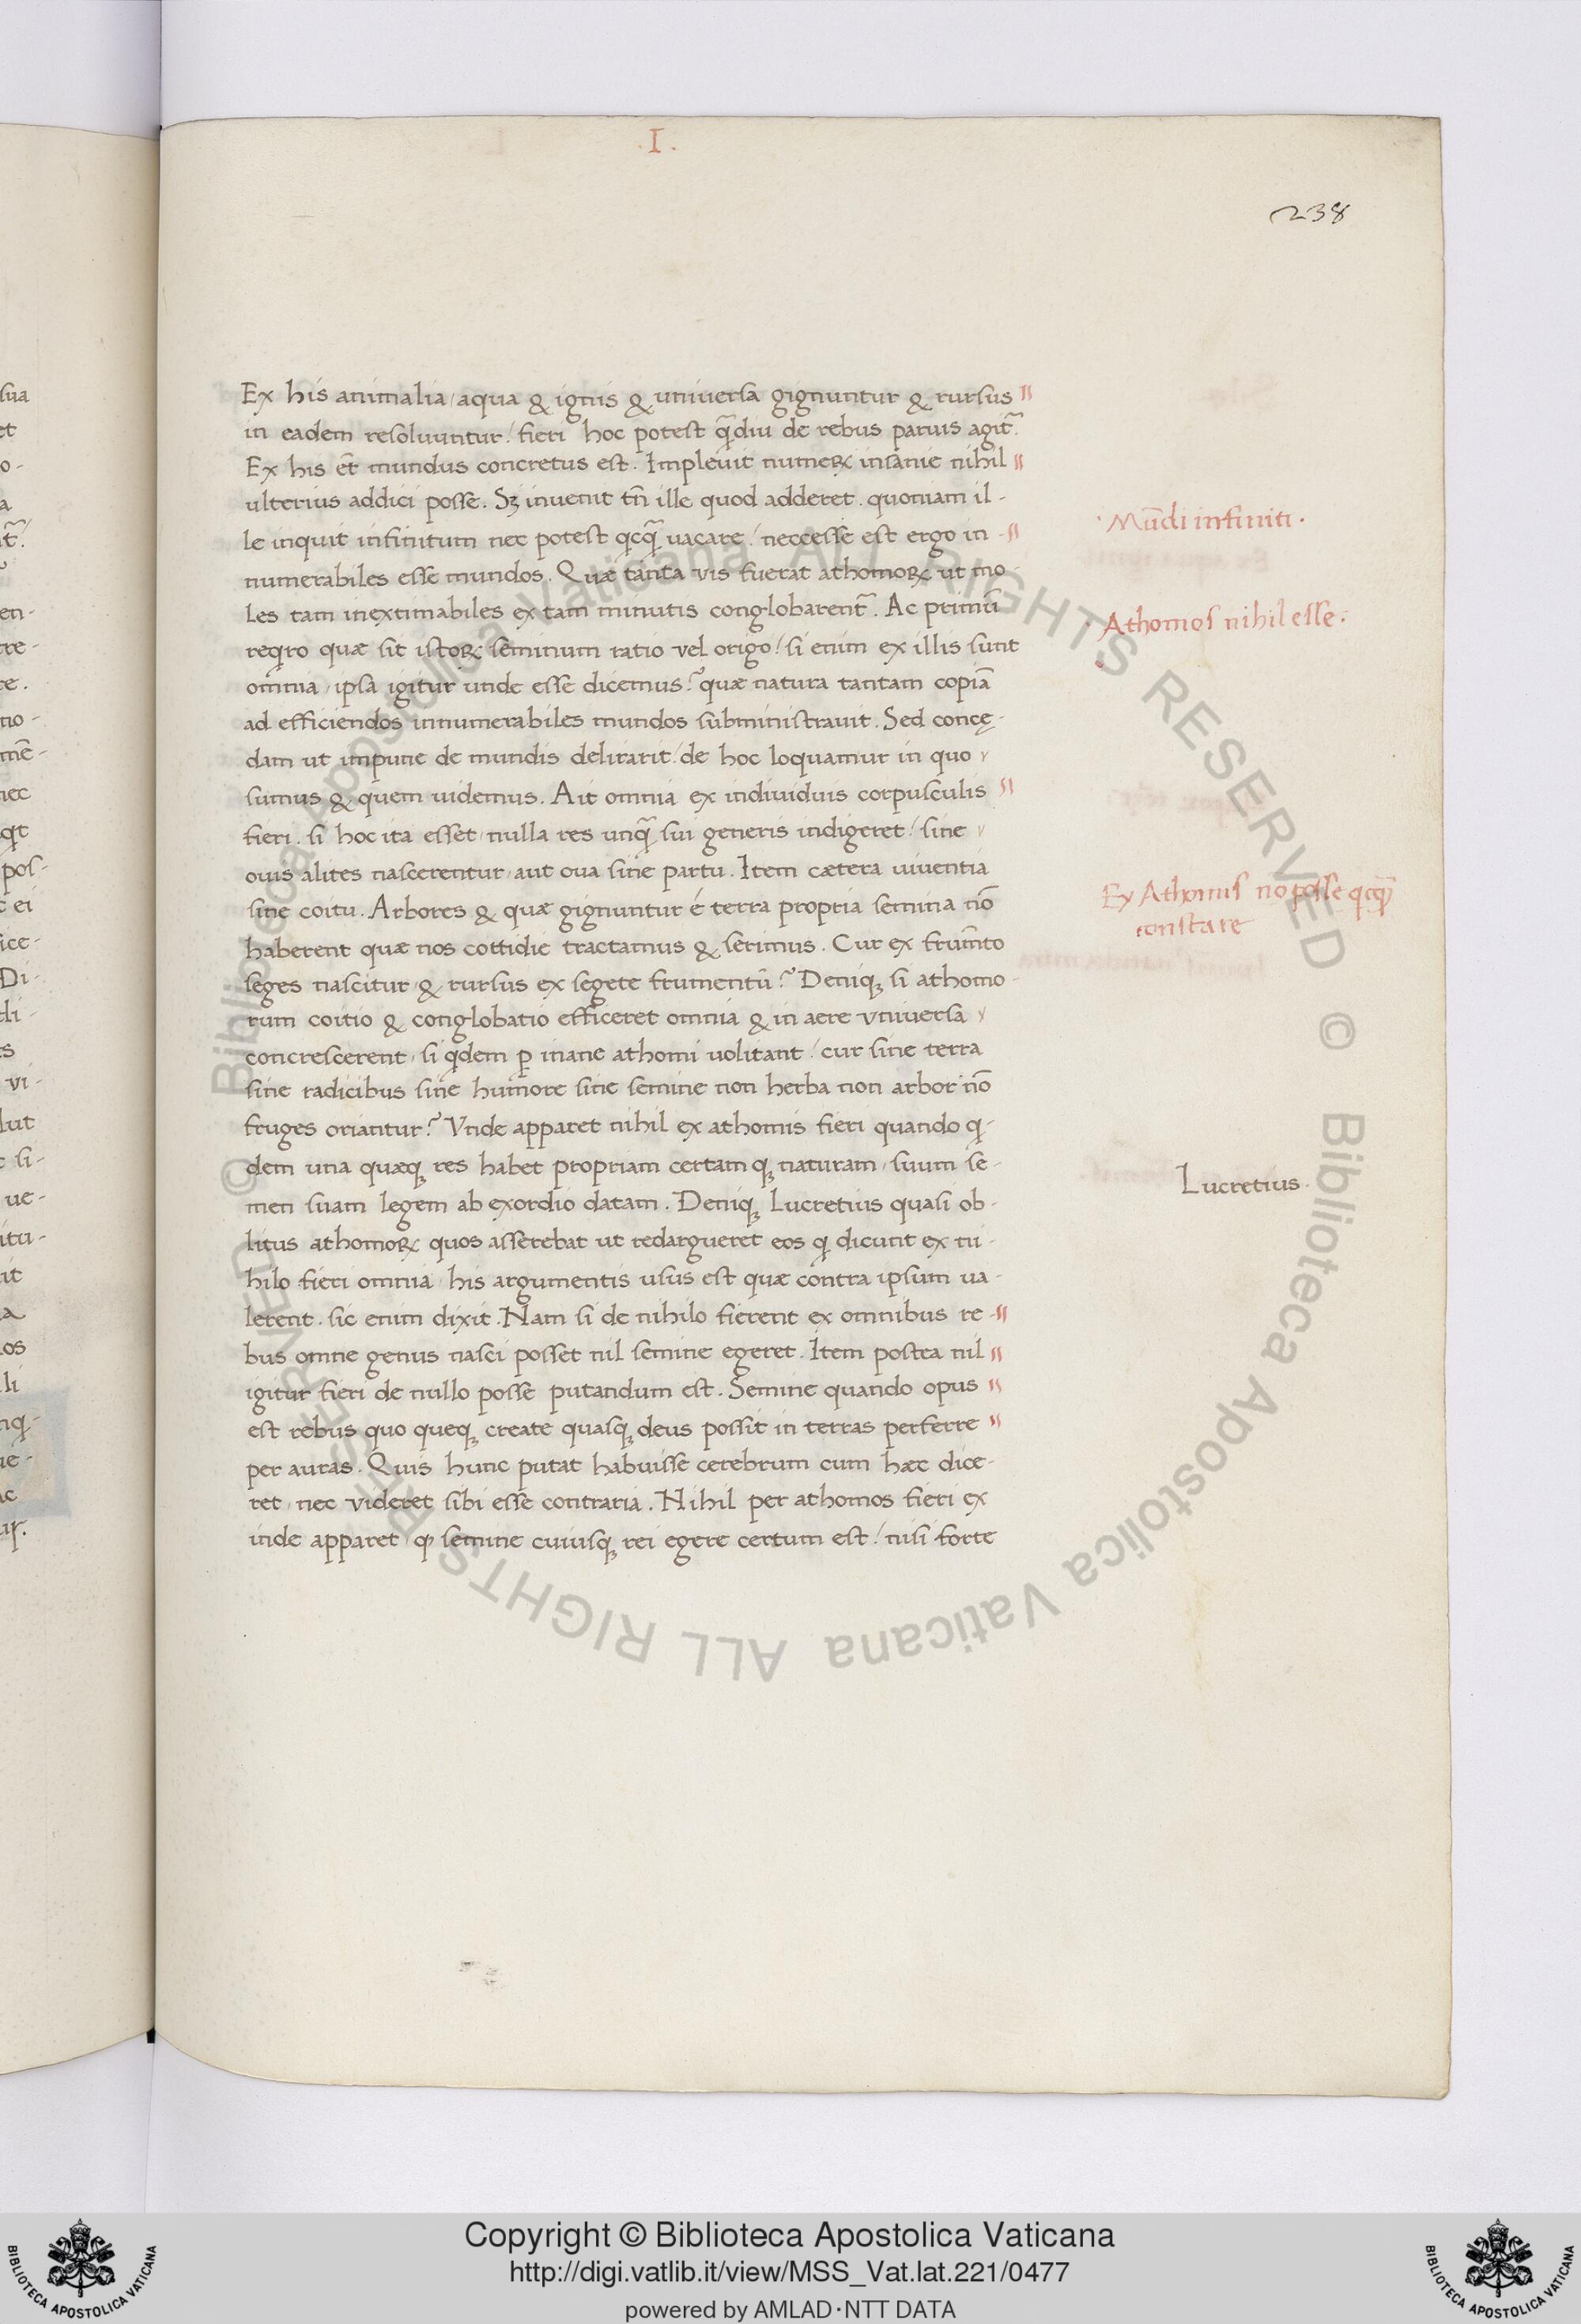 .I.
238
Ex his animalia, aqua & ignis & universa gignuntur & rursus
in eadem resoluuntur / fieri hoc potest q̄diu de rebus paruis agit̄.
Ex his et̄ mundus concretus est. Impleuit numeꝝ insanie nihil
ulterius addici posse. Sꝫ invenit tn̄ ille quod adderet. quoniam il-
le inquit infinitum nec potest qcq̄ vacare / neccesse est ergo in-
numerabiles esse mundos. Quæ tanta vis fuerat athomoꝝ ut mo-
les tam inextimabiles ex tam minutis conglobarent̄. Ac primū
reqro quæ sit istoꝝ seminum ratio vel origo / si enim ex illis sunt
omnia, ipsa igitur unde esse dicemus? quæ natura tantam copiā
ad efficiendos innumerabiles mundos subministrauit. Sed concę-
dam ut impune de mundis delirarit / de hoc loquamur in quo
sumus & quem uidemus. Ait omnia ex individuis corpusculis
fieri. si hoc ita esset, nulla res unq̄ sui generis indigeret / sine
ouis alites nascerentur, aut oua sine partu. Item cætera viventia
sine coitu. Arbores & quæ gignuntur é terra propria semina nō
haberent quæ nos cottidie tractamus & serimus. Cur ex frum̄to
seges nascitur & rursus ex segete frumentū? Deniqꝫ si athomo-
rum coitio & conglobatio efficeret omnia & in aere vniuersa
concrescerent, si qdem ꝑ inane athomi uolitant / cur sine terra
sine radicibus sine humore sine semine non herba non arbor nō
fruges oriantur? Vnde apparet nihil ex athomis fieri quando q-
dem una quæqꝫ res habet propriam certamqꝫ naturam, suum se-
men suam legem ab exordio datam. Deniqꝫ Lucretius quasi ob-
litus athomoꝝ quos asserebat ut redargueret eos q dicunt ex ni-
hilo fieri omnia, his argumentis usus est quæ contra ipsum ua-
lerent. sic enim dixit. Nam si de nihilo fierent ex omnibus re-
bus omne genus nasci posset nil semine egeret. Item postea nil
igitur fieri de nullo posse putandum est. Semine quando opus
est rebus quo queqꝫ create quasqꝫ deus possit in terras perferre
per auras. Quis hunc putat habuisse cerebrum cum hæc dice-
ret, nec videret sibi esse contraria. Nihil per athomos fieri ex
inde apparet, ꝙ semine cuiusqꝫ rei egere certum est / nisi forte
· Mūdi infiniti ·
· Athomos nihil esse ·
Ex Athomis no posse qcq̄
constare
Lucretius ·
© Biblioteca Apostolica Vaticana ALL RIGHTS RESERVED © Biblioteca Apostolica Vaticana ALL RIGHTS RESERVED
Copyright © Biblioteca Apostolica Vaticana
http://digi.vatlib.it/view/MSS_Vat.lat.221/0477
powered by AMLAD·NTT DATA
BIBLIOTECA APOSTOLICA VATICANA
BIBLIOTECA APOSTOLICA VATICANA